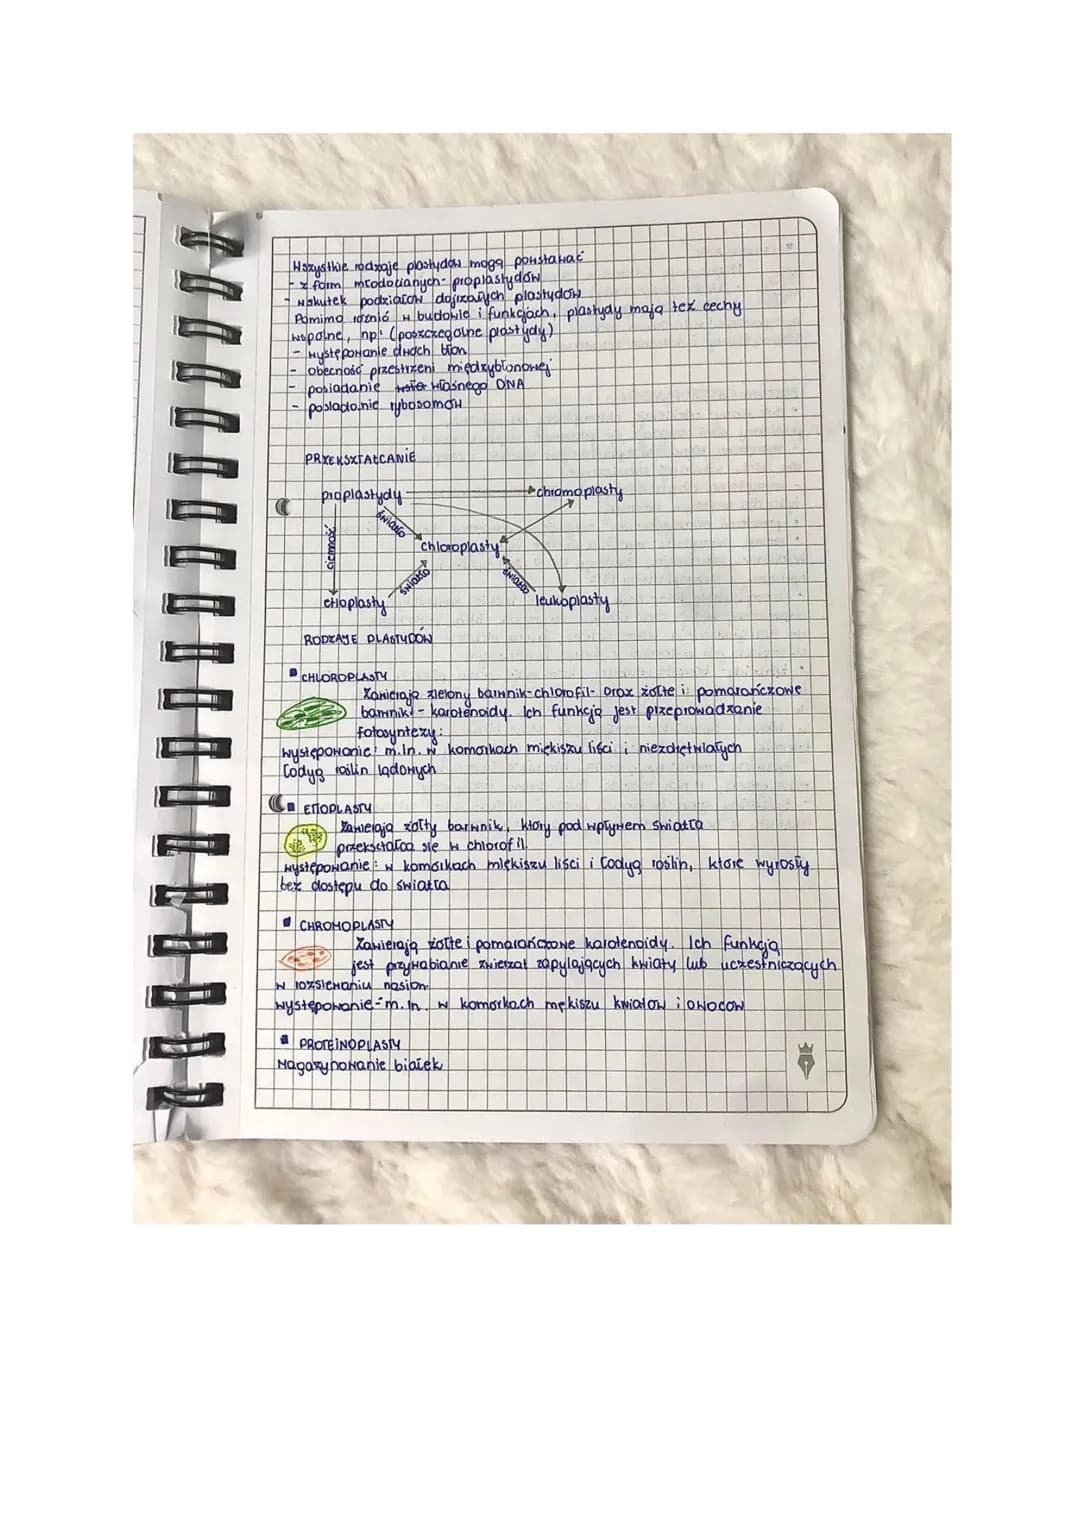 Wszystkie rodzaje plastydów mogą powstawać
- z form młodocianych - proplastydów
- wskutek podziałów dojrzałych plastydów
Pomimo różnić w budowie i funkcjach, plastydy mają też cechy
wspólne, np: (poszczególne plastydy)
- występowanie dwóch błon
- obecność przestrzeni międzybłonowej
- posiadanie własnego DNA
- posiadanie rybosomów
PRZEKSZTAŁCANIE
proplastydy chromoplasty
światło
ciemność
chloroplasty
światło światło
etioplasty leukoplasty
RODZAJE PLASTYDÓW
▪ CHLOROPLASTY
Zawierają zielony barwnik - chlorofil - oraz żółte i pomarańczowe
barwniki - karotenoidy. Ich funkcją jest przeprowadzanie
fotosyntezy:
występowanie: m.in. w komórkach miękiszu liści i niezdrętwiałych
łodyg roślin lądowych
▪ ETIOPLASTY
Zawierają żółty barwnik, który pod wpływem światła
przekształca się w chlorofil.
występowanie: w komórkach miękiszu liści i łodyg roślin, które wyrosły
bez dostępu do światła
▪ CHROMOPLASTY
Zawierają żółte i pomarańczowe karotenoidy. Ich funkcją
jest przywabianie zwierząt zapylających kwiaty lub uczestniczących
w rozsiewaniu nasion.
występowanie - m.in. w komórkach mękiszu kwiatów i owoców
▪ PROTEINOPLASTY
Magazynowanie białek